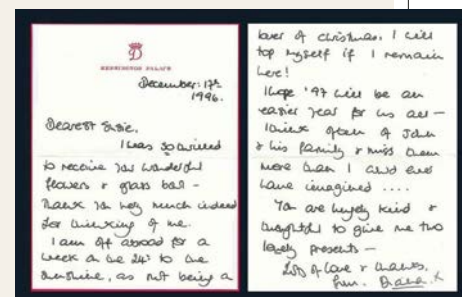 D
KENSINGTON PALACE
December: 17th
1996.
Dearest Susie.
I was so thrilled
to receive your wonderful
flowers & glass ball -
Thank you very much indeed
for thinking of me.
I am off abroad for a
week on the 24th to the
sunshine, as not being a
lover of christmas. I will
top myself if I remain
here!
I hope '97 will be an
easier year for us all -
I think often of John
& his family & miss them
more than I could ever
have imagined ....
You are hugely kind &
thoughtful to give me two
lovely presents -
Lots of love & thanks,
from. Diana. x